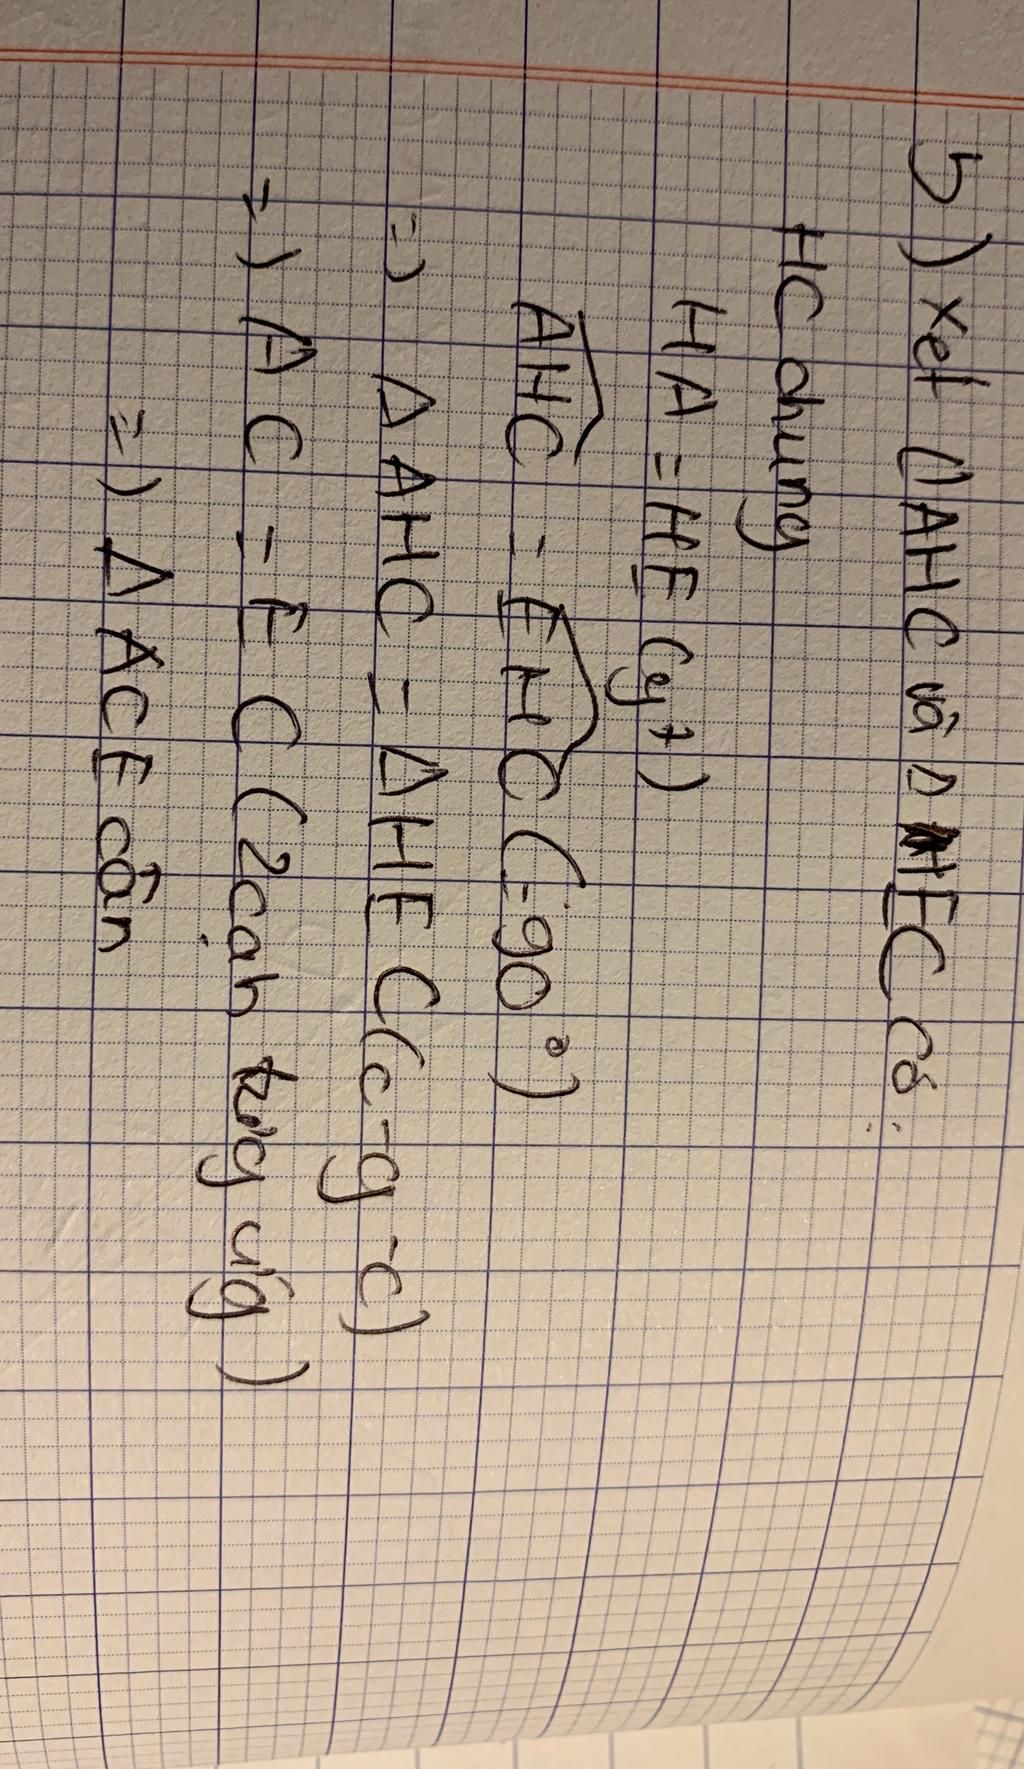 b) Xét ΔAHC và ΔHEC có:
HC chung
HA = HE (gt)
AHC = EHC (=90°)
=) ΔAHC = ΔHEC (c-g-c)
=) AC = EC (2 cạh tươg ứg)
=) ΔACE cân